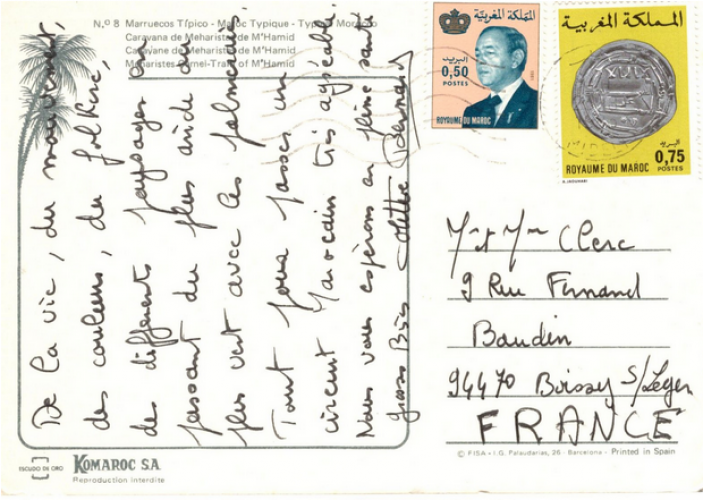 N.º 8 Marruecos Típico - Maroc Typique - Typical Morocco
Caravana de Meharistas de M'Hamid
Caravane de Meharistes de M'Hamid
Meharistes Camel-Train of M'Hamid
De la vie, du mouvement,
des couleurs, du folklore,
des différents paysages en
passant du plus aride au
plus vert avec les palmeraies.
Tout pour passer un
circuit Marocain très agréable.
Nous vous espérons en pleine santé
gros Bises Bernard
المملكة المغربية
البريد
0,50
POSTES
ROYAUME DU MAROC
المملكة المغربية
البريد
0,75
ROYAUME DU MAROC POSTES
Mr et Mme Clerc
9 Rue Fernand
Baudin
94470 Boissy S/Leger
FRANCE
ESCUDO DE ORO
KOMAROC S.A.
Reproduction interdite
© FISA - I.G. Palaudarias, 26 - Barcelona - Printed in Spain